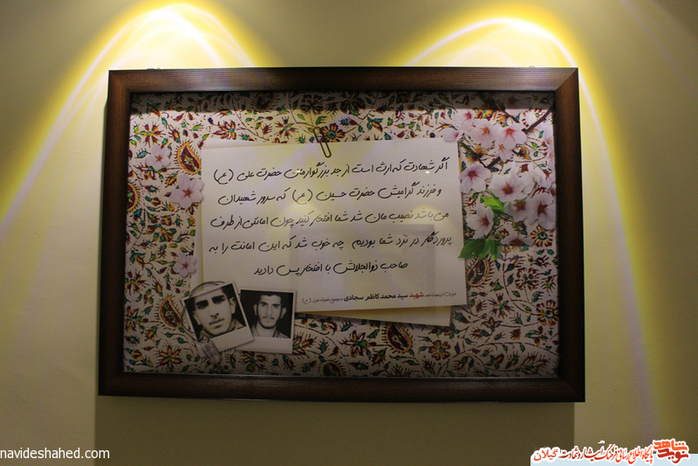 اگر شهادت که ارث است از جد بزرگوارمان حضرت علی (ع)
و فرزند گرامیش حضرت حسین (ع) که سرور شهیدان
می باشد نصیب مان شد شما افتخار کنید چون امانتی از طرف
پروردگار در نزد شما بودیم چه خوب شد که این امانت را به
صاحب ذوالجلالش با افتخار پس دادید
شهید سید محمد کاظم سجادی
navideshahed.com
نوید شاهد